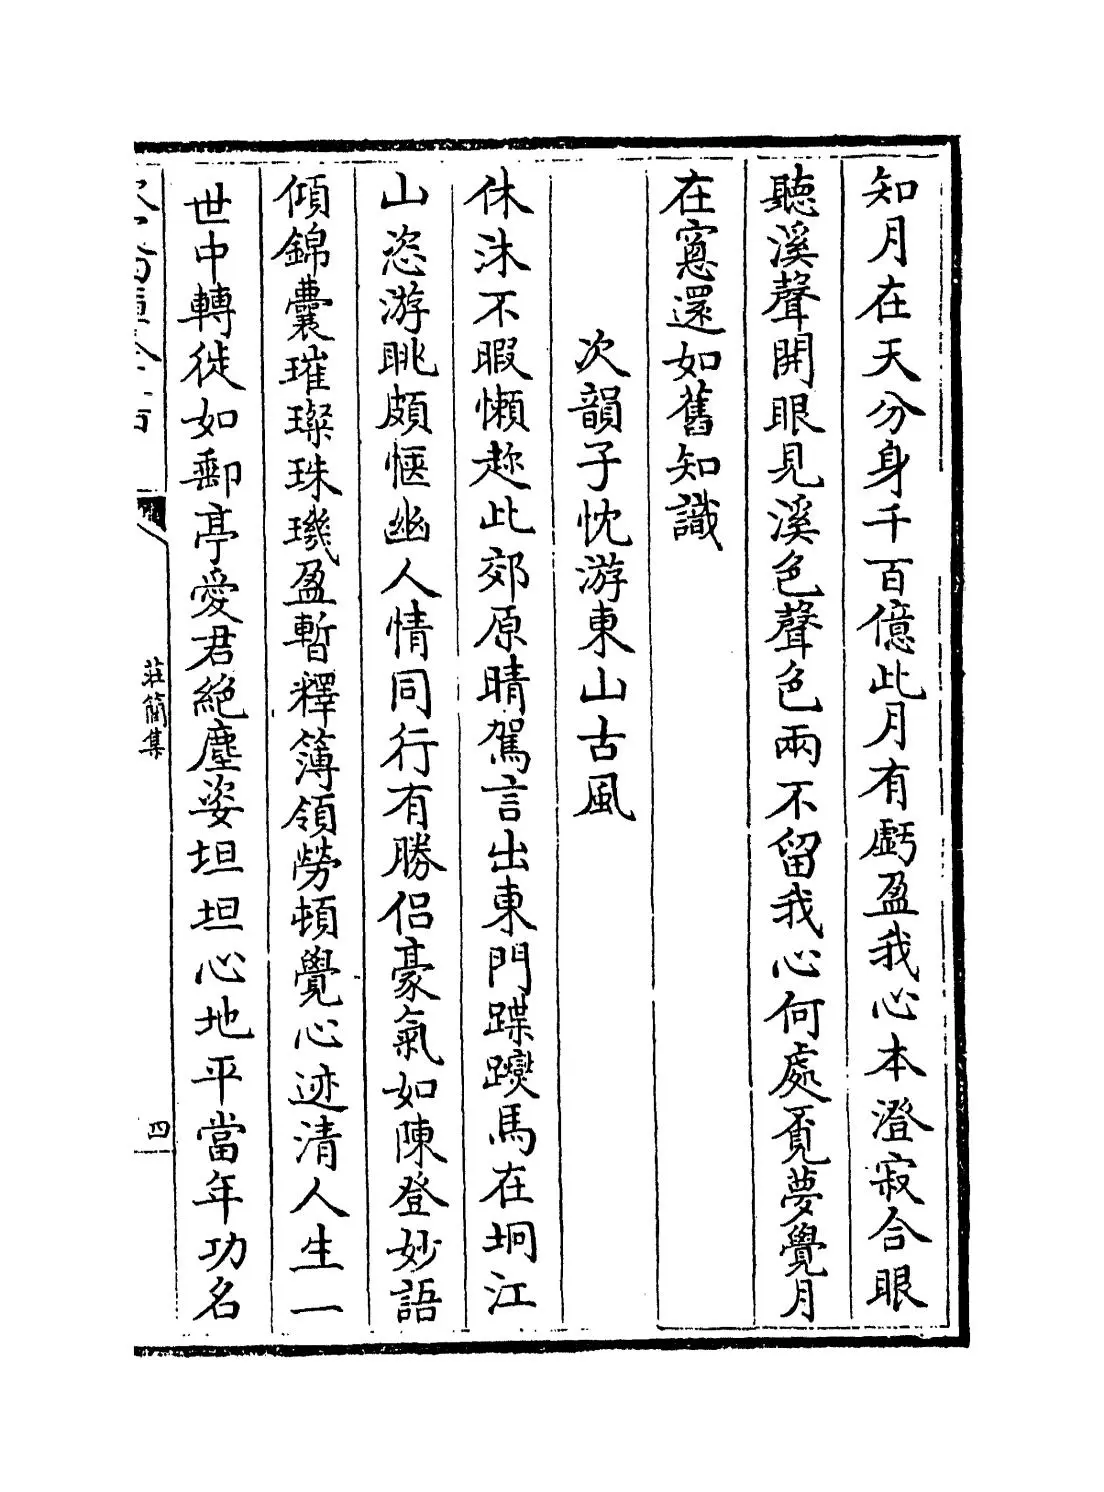 知月在天分身千百億此月有虧盈我心本澄寂合眼
聽溪聲開眼見溪色聲色兩不留我心何處覔夢覺月
在窻還如舊知識
次韻子忱游東山古風
休沐不暇懶趂此郊原晴駕言出東門蹀躞馬在坰江
山恣游眺頗愜幽人情同行有勝侣豪氣如陳登妙語
傾錦囊璀璨珠璣盈暫釋簿領勞頓覺心迹清人生一
世中轉徙如郵亭愛君絶塵姿坦坦心地平當年功名
莊簡集
四